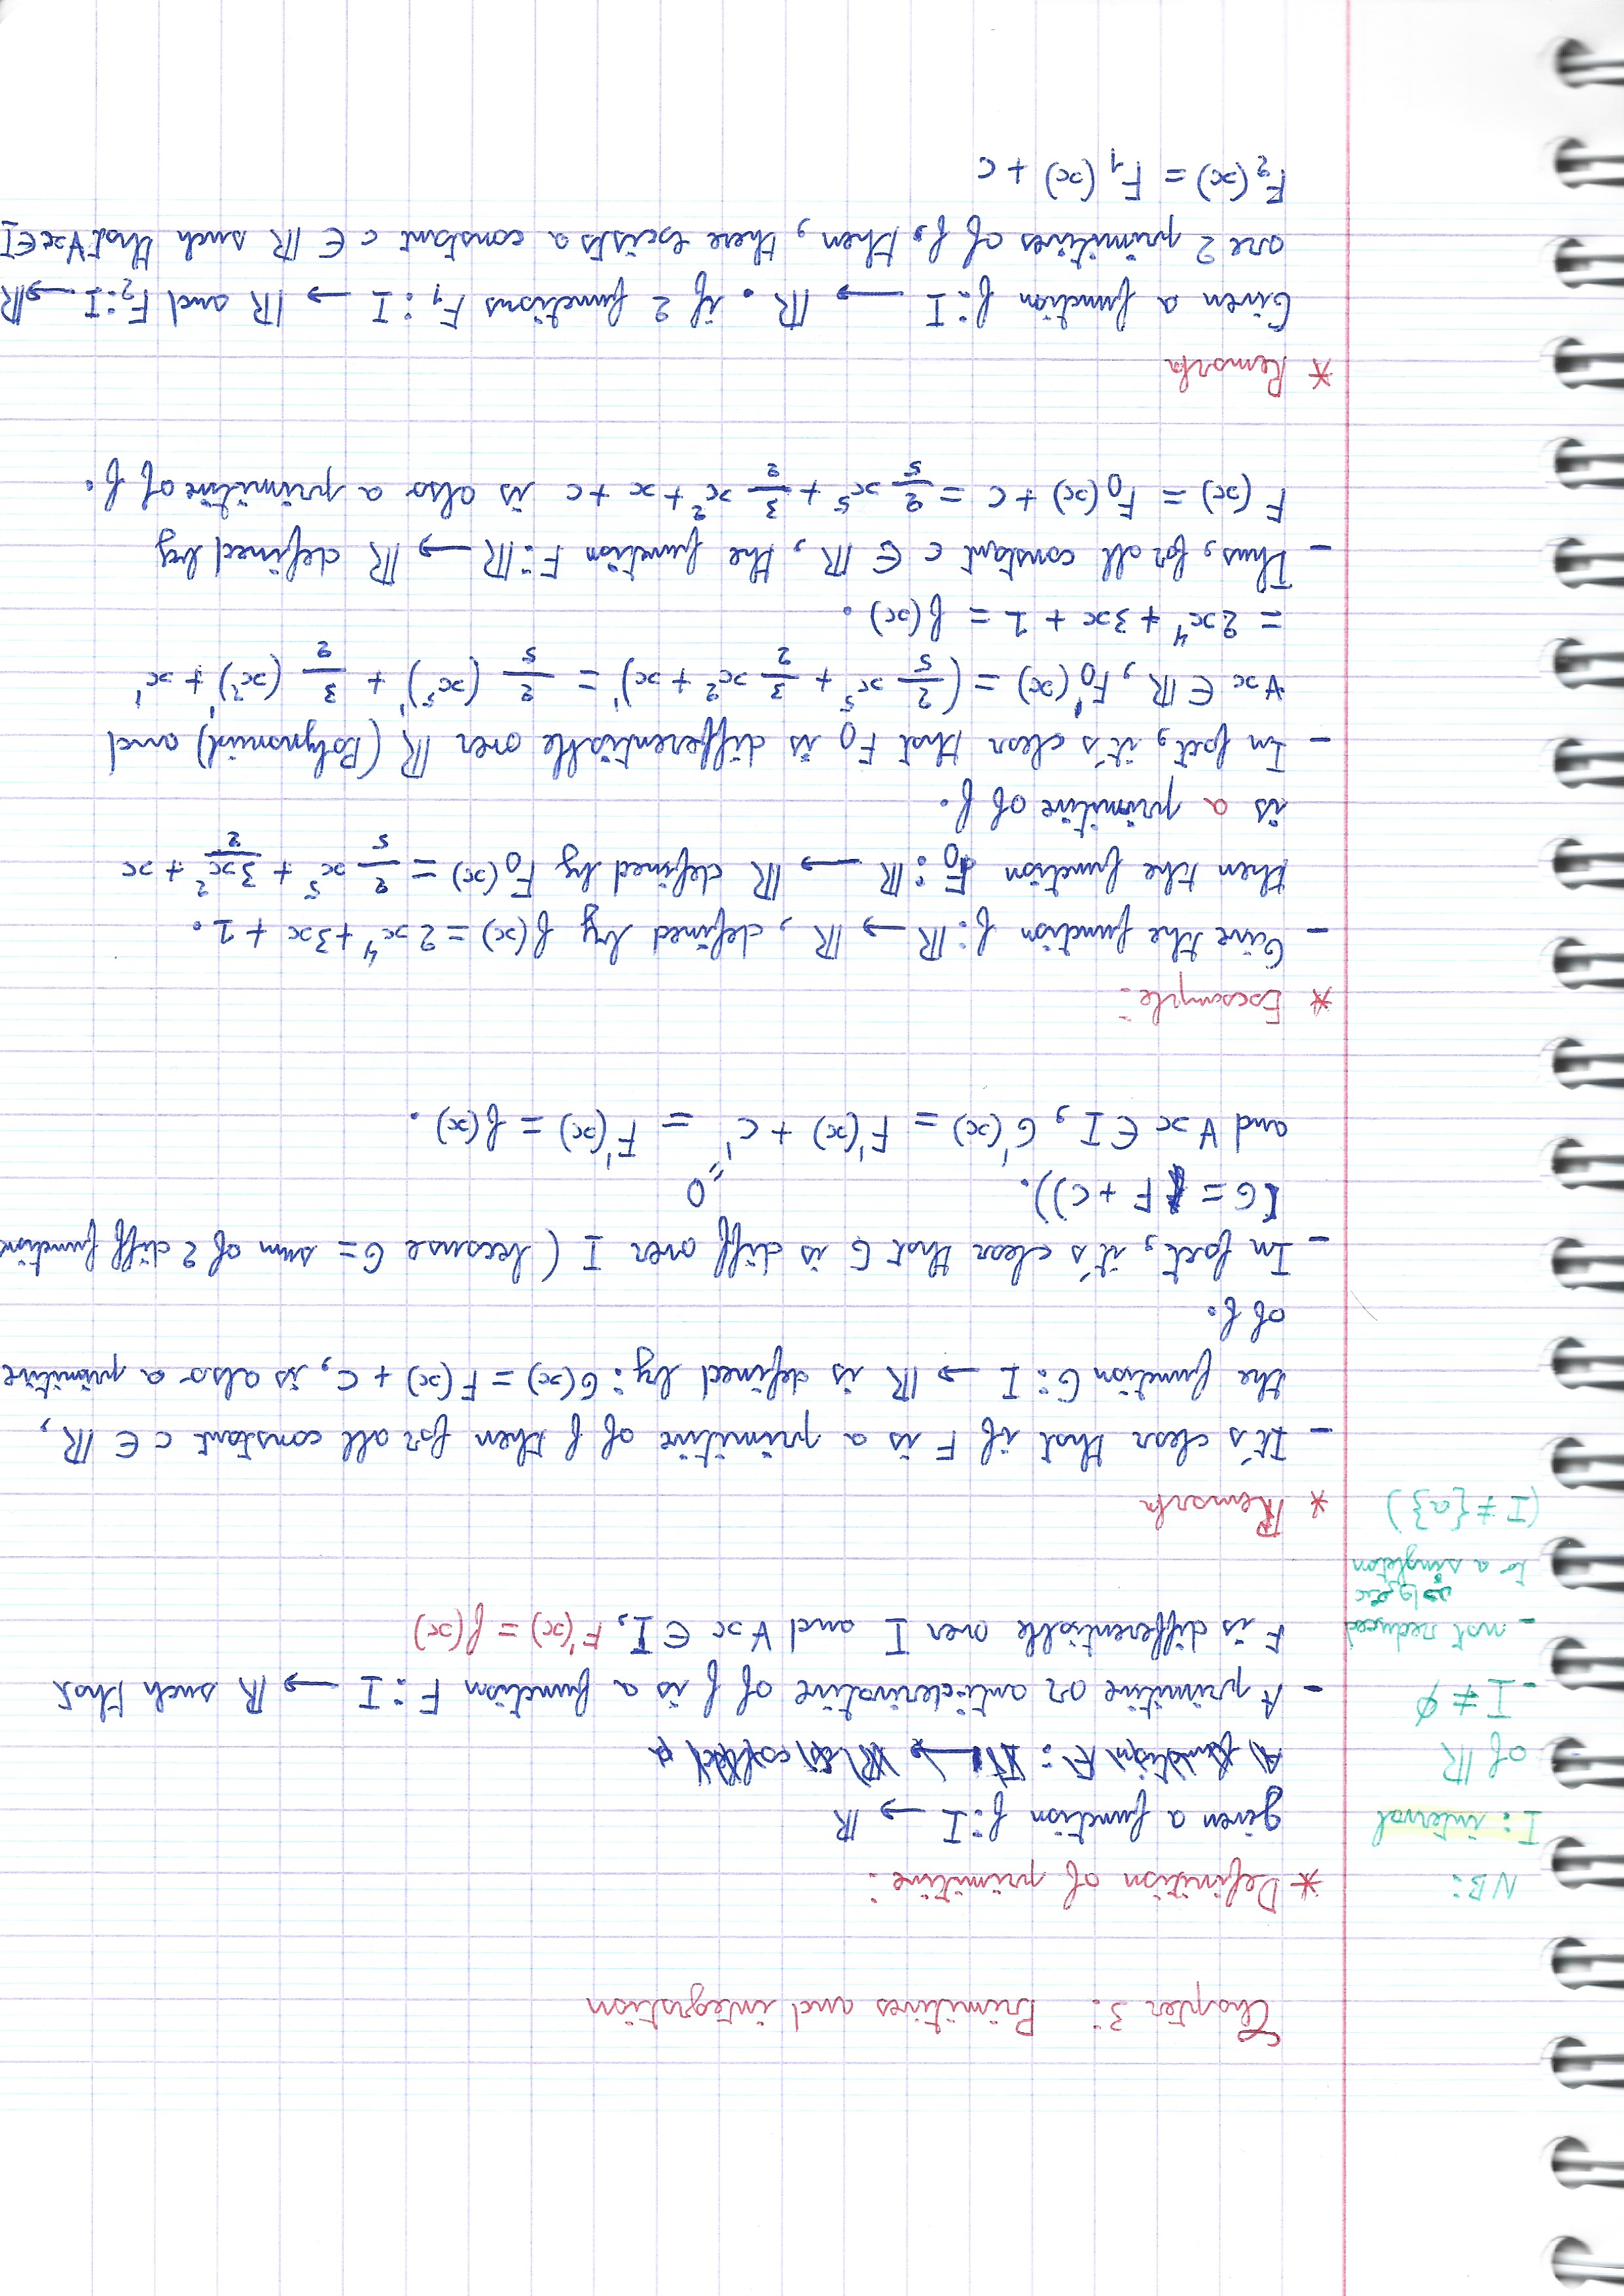 Chapter 3: Primitives and integration
NB:
I: interval
of ℝ
- I ≠ ∅
- not reduced
to a singleton
(I ≠ {a})
* Definition of primitive:
given a function f: I → ℝ
- A primitive or anti-derivative of f is a function F: I → ℝ such that
F is differentiable over I and ∀x ∈ I, F'(x) = f(x)
* Remark
- It's clear that if F is a primitive of f then for all constant c ∈ ℝ,
the function G: I → ℝ is defined by: G(x) = F(x) + c, is also a primitive
of f.
- In fact, it's clear that G is diff over I (because G = sum of 2 diff function
(G = F + c)).
and ∀x ∈ I, G'(x) = F'(x) + c' "=0 = F'(x) = f(x).
* Example:
- Give the function f: ℝ → ℝ, defined by f(x) = 2x⁴ + 3x + 1.
then the function F₀: ℝ → ℝ defined by F₀(x) = 2/5 x⁵ + 3x²/2 + x
is a primitive of f.
- In fact, it's clear that F₀ is differentiable over ℝ (Polynomial) and
∀x ∈ ℝ, F₀'(x) = (2/5 x⁵ + 3/2 x² + x)' = 2/5 (x⁵)' + 3/2 (x²)' + x'
= 2x⁴ + 3x + 1 = f(x).
- Thus, for all constant c ∈ ℝ, the function F: ℝ → ℝ defined by
F(x) = F₀(x) + c = 2/5 x⁵ + 3/2 x² + x + c is also a primitive of f.
* Remark
Given a function f: I → ℝ. if 2 functions F₁: I → ℝ and F₂: I → ℝ
are 2 primitives of f, then, there exists a constant c ∈ ℝ such that ∀x ∈ I
F₂(x) = F₁(x) + c